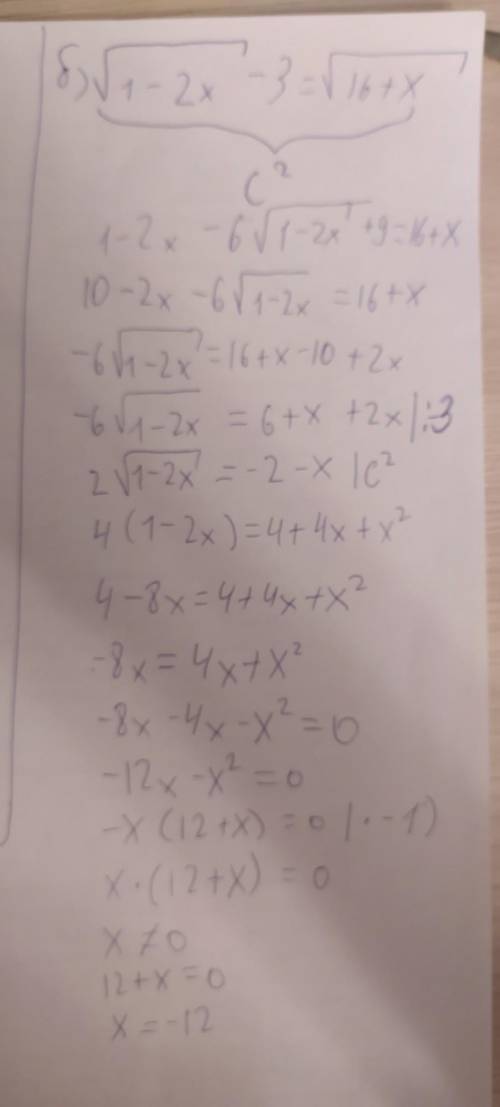 б) √1-2x -3=√16+x
c²
1-2x -6√1-2x +9=16+x
10-2x -6√1-2x =16+x
-6√1-2x =16+x-10+2x
-6√1-2x = 6+x +2x |:3
2√1-2x =-2-x |c²
4(1-2x)=4+4x+x²
4-8x=4+4x+x²
-8x=4x+x²
-8x-4x-x²=0
-12x-x²=0
-x(12+x)=0 |·-1)
x·(12+x)=0
x≠0
12+x=0
x=-12